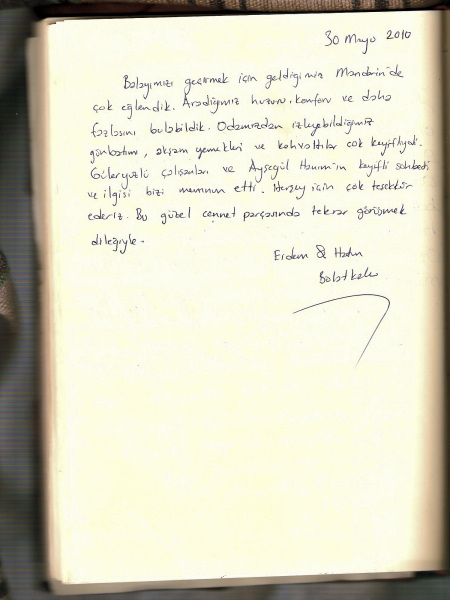 30 Mayıs 2010
Balayımızı geçirmek için geldiğimiz Mandarin'de
çok eğlendik. Aradığımız huzuru, konforu ve daha
fazlasını bulabildik. Odamızdan izleyebildiğimiz
günbatımı, akşam yemekleri ve kahvaltılar çok keyifliydi.
Güleryüzlü çalışanları ve Ayşegül Hanım'ın keyifli sohbeti
ve ilgisi bizi memnun etti. Herşey için çok teşekkür
ederiz. Bu güzel cennet parçasında tekrar görüşmek
dileğiyle.
Erdem &